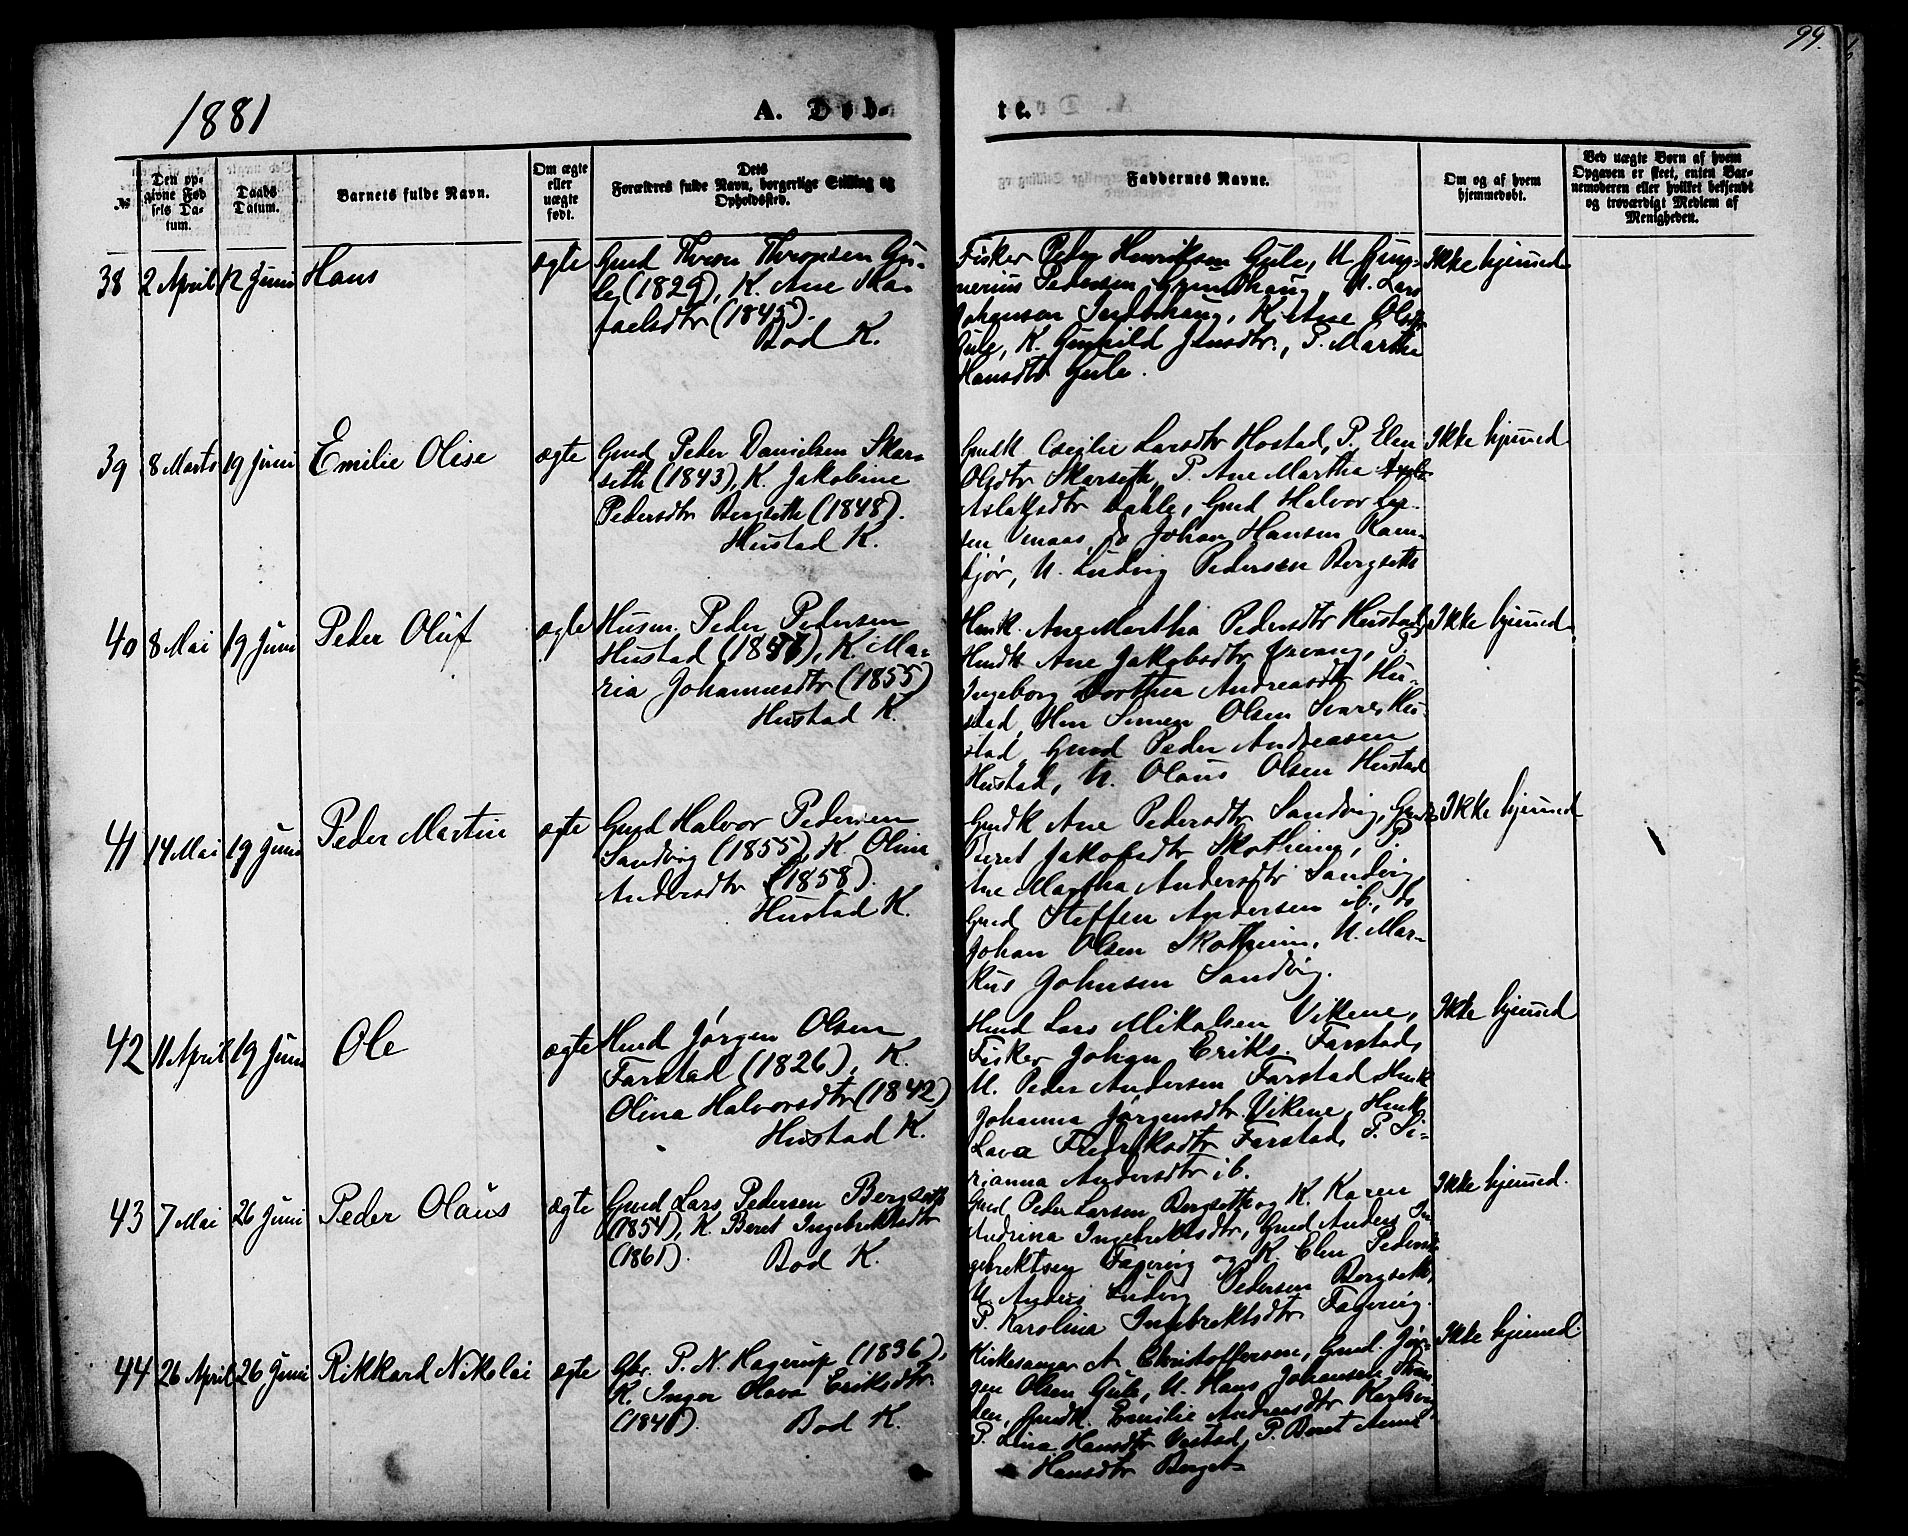 99.
1881
A. Døb-
te.
№
Den op-
givne Fød
sels Da-
tum.
Daabs
Datum.
Barnets fulde Navn.
Om ægte
eller
uægte
født.
Dets
Forældres fulde Navn, borgerlige Stilling og
Opholdssted.
Faddernes Navne.
Om og af hvem
hjemmedøbt.
Ved uægte Børn af hvem
Opgaven er skeet, enten Bar-
nemoderen eller hvilket bekjendt
og troværdigt Medlem af
Menigheden.
38 2 April 12 Juni Hans ægte
Gmd Thron Thronsen Gu-
le (1829), K. Ane Ra-
faelsdtr (1845).
Bod K.
Fisker Peder Henriksen Gule, U.
Pedersen U. Lars
Johansen K. Ane Olsdtr
Gule, K. Gunhild Jensdtr., P. Martha
Hansdtr Gule.
Ikke hjemmed
39 8 Marts 19 Juni Emilie Olise ægte
Gmd Peder Danielsen Skar-
seth (1843), K. Jakobine
Pedersdtr Bergseth (1848).
Hustad K.
Gmdk. Larsdtr Hostad, P. Elen
Olsdtr Skarseth, P. Ane Martha
Aslaksdtr Dahle, Gmd Halvor
sen Venaas, do Johan Hansen Ram-
bjør, U. Ludvig Pedersen Bergseth
Ikke hjemmed
40 8 Mai 19 Juni Peder Oluf ægte
Husm. Peder Pedersen
Hustad (1857), K. Ma-
ria Johannesdtr (1855)
Hustad K.
Hmk. Ane Martha Pedersdtr Hustad,
Hmdk Ane Jakobsdtr P.
Ingeborg Dorthea Andreasdtr Hu-
stad, Hm Simen Olsen Hu-
stad, Gmd Peder Andreasen
Hustad, U. Olaus Olsen Hustad
Ikke hjemmed
41 14 Mai 19 Juni Peder Martin ægte
Gmd Halvor Pedersen
Sandvig (1855), K. Olina
Andersdtr (1858).
Hustad K.
Gmdk Ane Pedersdtr Sandvig, Gmdk
Beret Jakobsdtr Skotheim, P.
Ane Martha Andersdtr Sandvig,
Gmd Steffen Andersen ib., do
Johan Olsen Skotheim, U. Mar-
kus Johnsen Sandvig.
Ikke hjemmed
42 11 April 19 Juni Ole ægte
Hmd Jørgen Olsen
Farstad (1826), K.
Olina Halvorsdtr (1842)
Hustad K.
Hmd Lars Mikalsen Vikene,
Fisker Johan Eriks. Farstad,
U. Peder Andersen Farstad, Hmk
Johanna Jørgensdtr Vikene, Hmk
Lava Fredriksdtr Farstad, P. Si-
rianna Andersdtr ib.
Ikke hjemmed
43 7 Mai 26 Juni Peder Olaus ægte
Gmd Lars Pedersen Bergseth
(1854), K. Beret Ingebrektsdtr
(1861). Bod K.
Gmd Peder Larsen Bergseth og K. Karen
Andrina Ingebrektsdtr, Gmd Anders In-
gebrektsen Fagervig og K. Elen Pedersdtr
U. Anders Ludvig Pedersen Bergseth,
P. Karolina Ingebrektsdtr Fagervig.
Ikke hjemmed.
44 26 April 26 Juni Rikkard Nikolai ægte
Gbr. P. N. Hagerup (1836),
K. Inger Olava Eriksdtr
(1840). Bod K.
Kirkesanger A. Christoffersen, Gmd. Jør-
gen Olsen Gule, U. Hans Johansen Stran-
den, Gmdk. Emilie Andreasdtr
P. Lina Hansdtr Vestad, P. Beret Anne
Hansdtr Berget
Ikke hjemmed